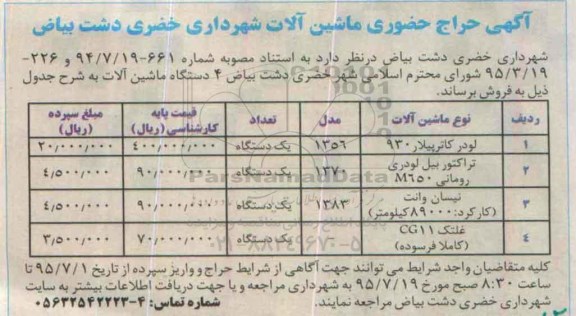 آگهی حراج حضوری ماشین آلات شهرداری خضری دشت بیاض
شهرداری خضری دشت بیاض درنظر دارد به استناد مصوبه شماره ۶۶۱-۹۴/۷/۱۹ و ۲۲۶-
۹۵/۳/۱۹ شورای محترم اسلامی شهر خضری دشت بیاض ۴ دستگاه ماشین آلات به شرح جدول
ذیل به فروش برساند.
ردیف نوع ماشین آلات مدل تعداد قیمت پایه کارشناسی (ریال) مبلغ سپرده (ریال)
۱ لودر کاترپیلار ۹۳۰ ۱۳۵۶ یک دستگاه ۴۰۰٫۰۰۰٫۰۰۰ ۲۰٫۰۰۰٫۰۰۰
۲ تراکتور بیل لودری رومانی M۶۵۰ ۱۳۷۰ یک دستگاه ۹۰٫۰۰۰٫۰۰۰ ۴٫۵۰۰٫۰۰۰
۳ نیسان وانت (کارکرد: ۸۹۰۰۰ کیلومتر) ۱۳۸۳ یک دستگاه ۹۰٫۰۰۰٫۰۰۰ ۴٫۵۰۰٫۰۰۰
۴ غلتک CG۱۱ (کاملا فرسوده) یک دستگاه ۷۰٫۰۰۰٫۰۰۰ ۳٫۵۰۰٫۰۰۰
ParsNamadData
۰۲۱-۸۸۳۴۹۶۷۰-۵
کلیه متقاضیان واجد شرایط می توانند جهت آگاهی از شرایط حراج و واریز سپرده از تاریخ ۹۵/۷/۱ تا
ساعت ۸:۳۰ صبح مورخ ۹۵/۷/۱۹ به شهرداری مراجعه و یا جهت دریافت اطلاعات بیشتر به سایت
شهرداری خضری دشت بیاض مراجعه نمایند. شماره تماس: ۴-۰۵۶۳۲۵۴۲۲۲۳